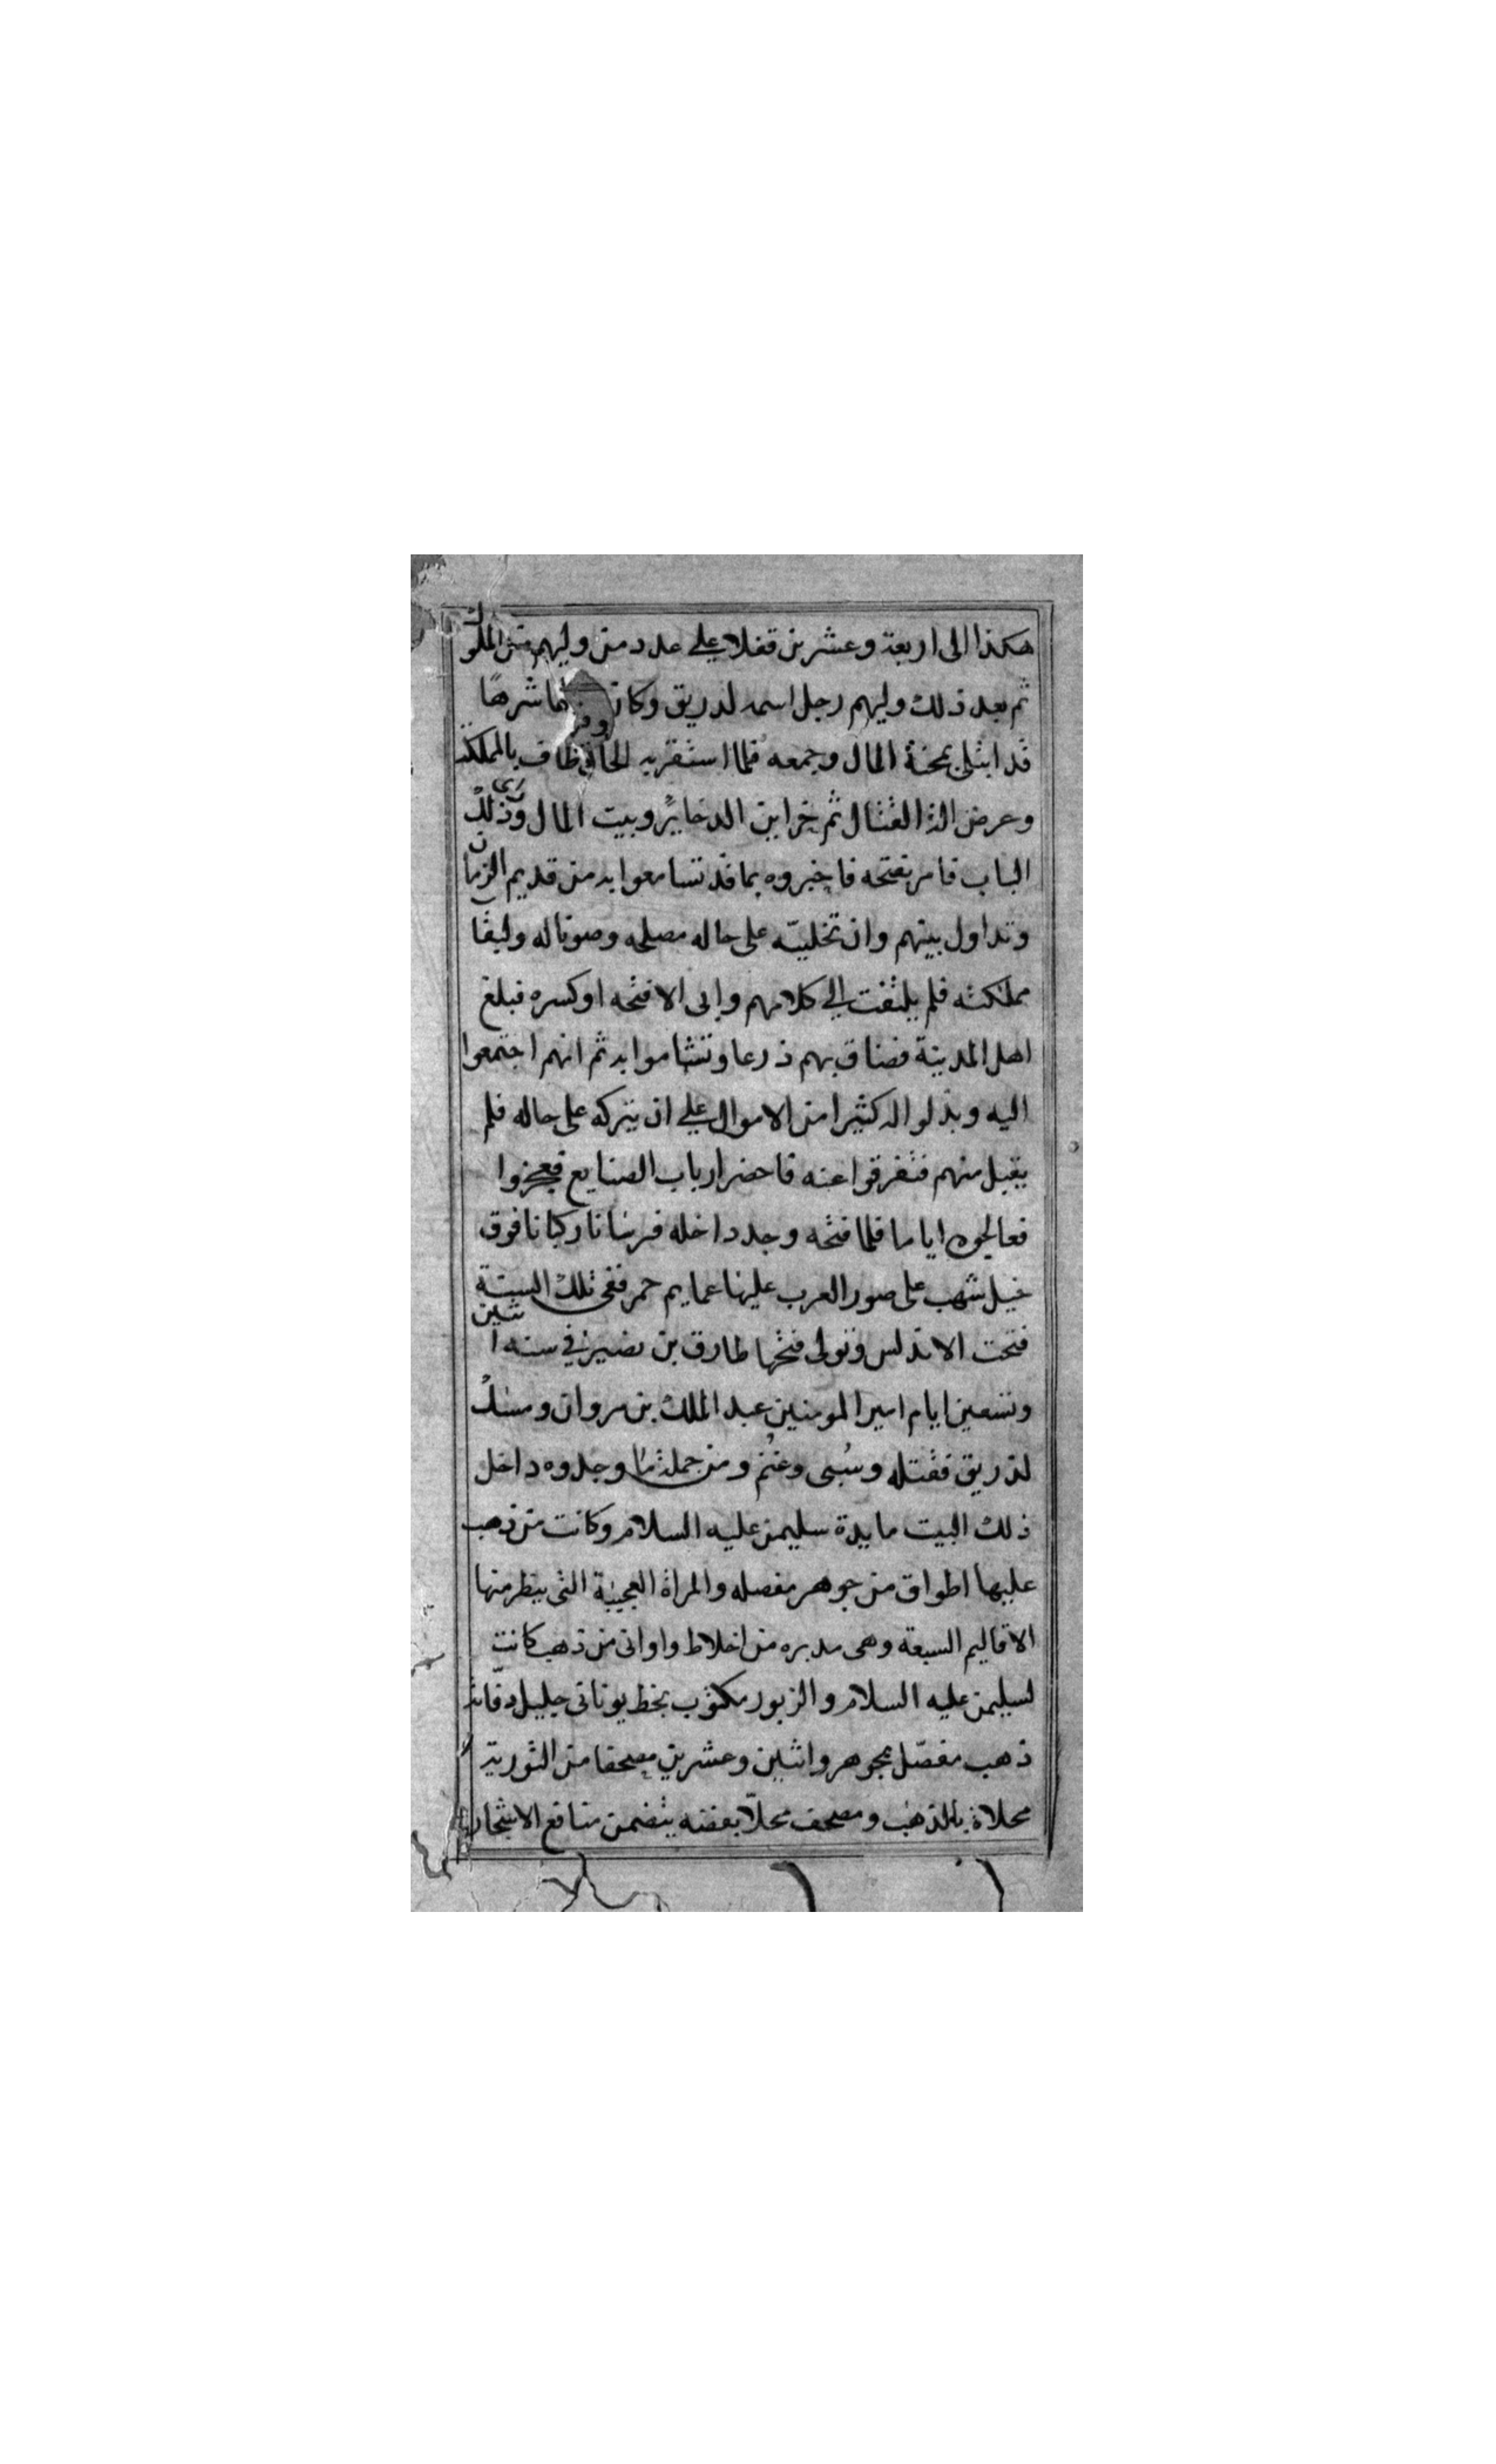 هكذا الى اربعة وعشرين قفلا على عدد من وليهم من الملوك
ثم بعد ذلك وليهم رجل اسمه لذريق وكان شرها
قد ابتلى بمحنة المال وجمعه فلما استقر به الحال وطاف بالمملكة
وعرض الة القتال ثم خزاين الدخاير وبيت المال وراى ذلك
الباب فامر بفتحه فاخبروه بما قد تسامعوا به من قديم الزمان
وتداول بينهم وان تخليته على حاله مصلحه وصونا له ولبقا
مملكته فلم يلتفت الى كلامهم وابى الا فتحه او كسره فبلغ
اهل المدينة فضاق بهم ذرعا وتشاموا به ثم انهم اجتمعوا
اليه وبذلوا له كثيرا من الاموال على ان يتركه على حاله فلم
يقبل منهم فتفرقوا عنه فاحضر ارباب الصنايع فعجزوا
فعالجوه اياما فلما فتحه وجد داخله فرسانا ركبانا فوق
خيل شهب على صور العرب عليها عمايم حمر ففي تلك السنة
فتحت الاندلس وتولى فتحها طارق بن نصير في سنه اثنين
وتسعين ايام امير المومنين عبد الملك بن مروان ومسك
لذريق فقتله وسبى وغنم ومن جملة ما وجدوه داخل
ذلك البيت مايدة سليمن عليه السلام وكانت من ذهب
عليها اطواق من جوهر مفصله والمراة العجيبة التى ينظر منها
الاقاليم السبعه وهى مدبره من اخلاط واوانى من ذهب كانت
لسليمن عليه السلام والزبور مكتوب بخط يونانى جليل دفاته
ذهب مفصل بجوهر واثنين وعشرين مصحفا من التورية
محلاة بالذهب ومصحف محلا بفضه يتضمن منافع الاشجار